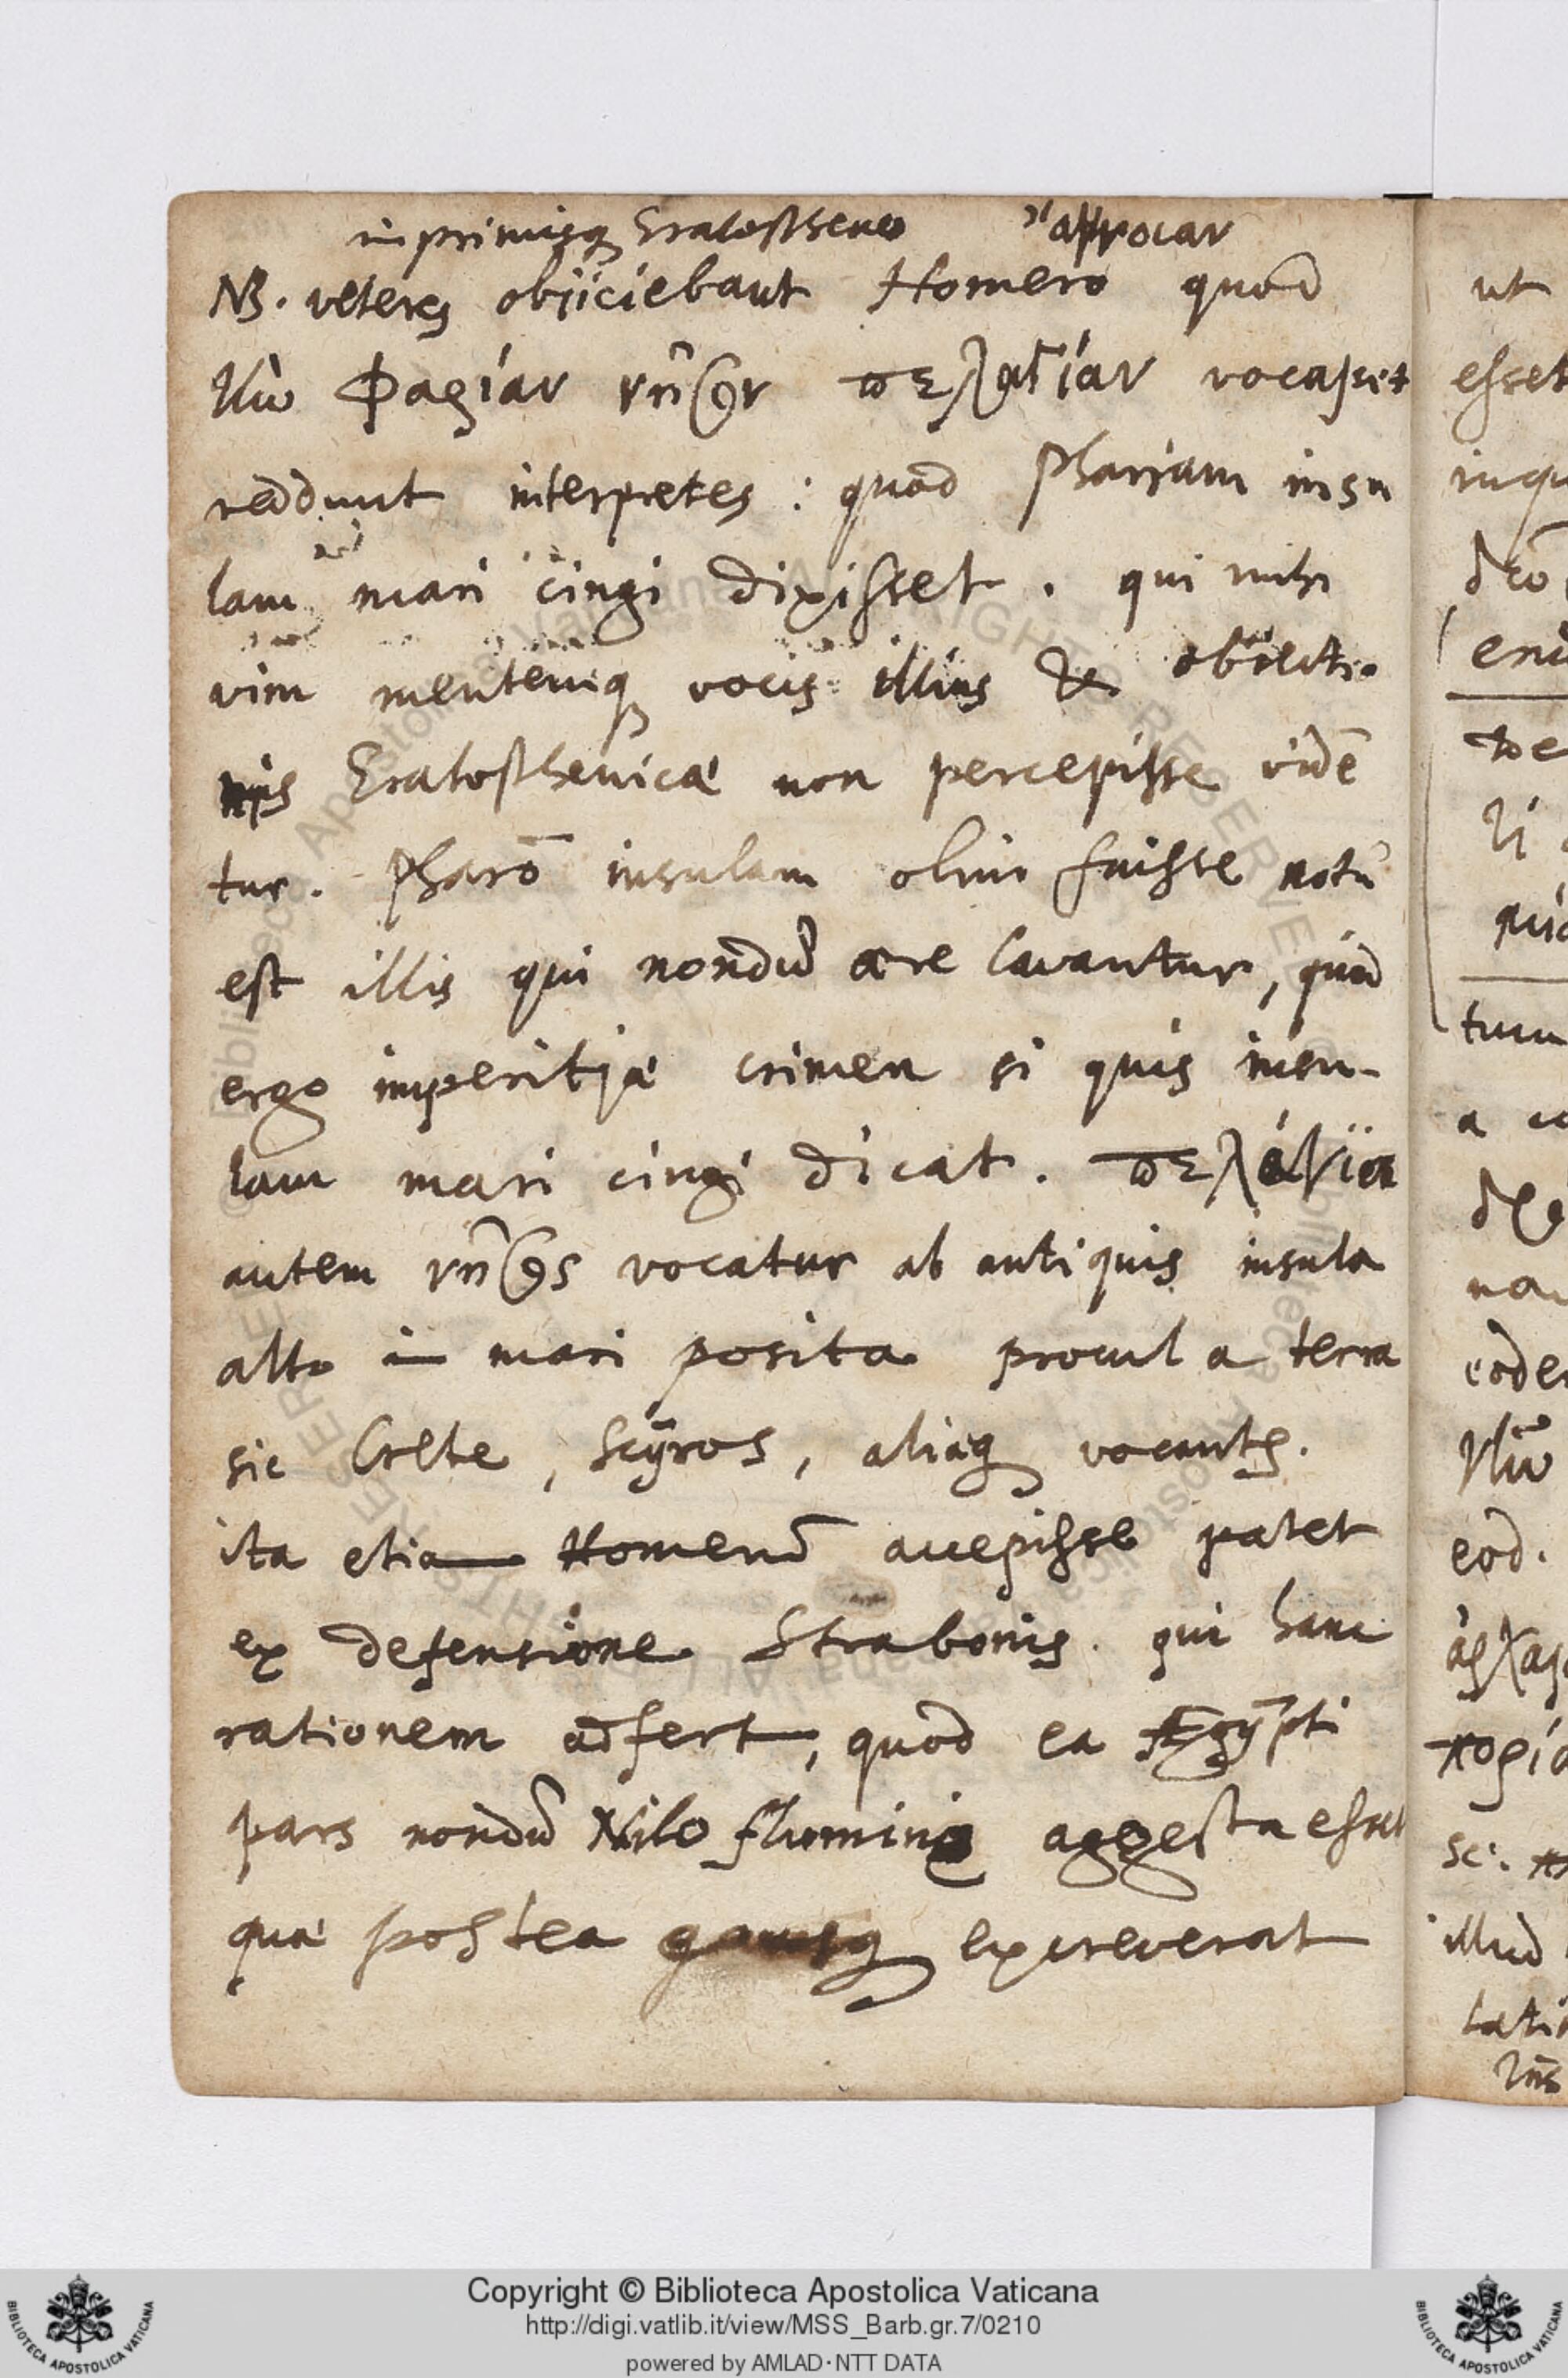 inprimisq Eratosthenes ἄγνοιαν
NB. veteres objiciebant Homero quod
τὴν Φαρίαν νῆσον πελαγίαν vocasset
reddunt interpretes : quod Phariam insu
lam mari cingi dixisset . qui mihi
vim mentemq vocis illius & obiectio
nis Eratosthenicæ non percepisse vidē
tur . Pharō insulam olim fuisse notū
est illis qui nondū ære lavantur, quod
ergo imperitiæ crimen si quis insu-
lam mari cingi dicat . πελάγια
autem νῆσος vocatur ab antiquis insula
alto in mari posita procul a terra
sic Crete , Scÿros , aliæq vocantʳ.
ita etiam Homerū accepisse patet
ex defensione Strabonis . qui hanc
rationem adfert, quod ea Ægÿpti
pars nondū Nilo flumine aggesta esset
quæ postea excreverat
ut
esset
inqu
tum
a
eod.
sc:
illud
lati
Copyright © Biblioteca Apostolica Vaticana
http://digi.vatlib.it/view/MSS_Barb.gr.7/0210
powered by AMLAD·NTT DATA
BIBLIOTECA APOSTOLICA VATICANA
BIBLIOTECA APOSTOLICA VATICANA